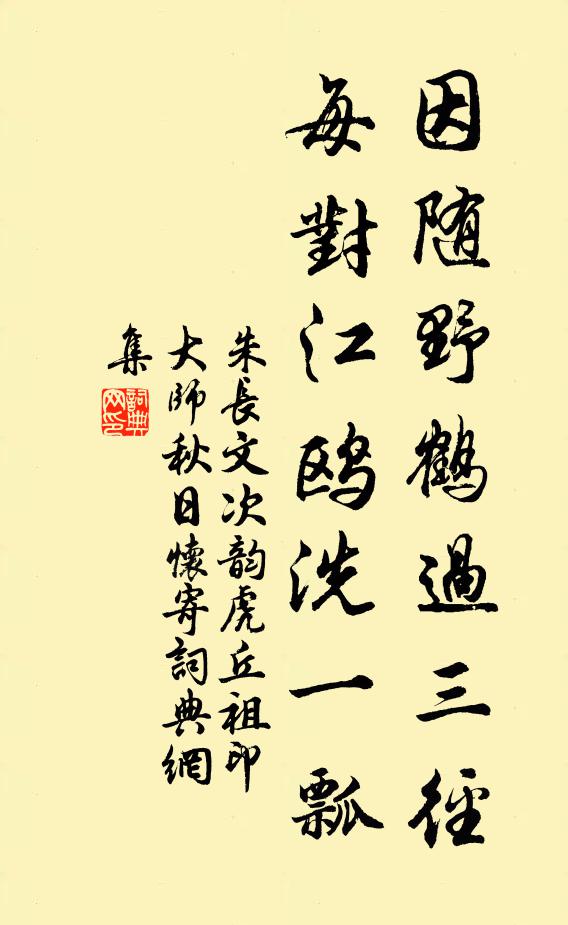 因随野鹤過三徑
每對江鸥洗一瓢
朱長文次韵虎丘祖印
大師秋日懷寄詞典網
集
詞典
网印